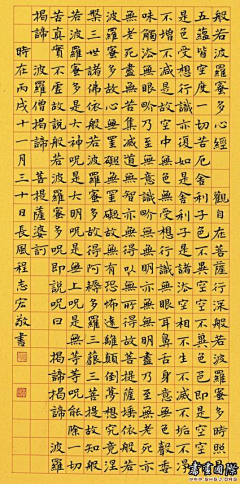 般若波羅蜜多心經 觀自在菩薩行深般若波羅蜜多時照見
五蘊皆空度一切苦厄舍利子色不異空空不異色色即是空空即
是色受想行識亦復如是舍利子是諸法空相不生不滅不垢不淨
不增不減是故空中無色無受想行識無眼耳鼻舌身意無色聲香
味觸法無眼界乃至無意識界無無明亦無無明盡乃至無老死亦
無老死盡無苦集滅道無智亦無得以無所得故菩提薩埵依般若
波羅蜜多故心無罣礙無罣礙故無有恐怖遠離顛倒夢想究竟涅
槃三世諸佛依般若波羅蜜多故得阿耨多羅三藐三菩提故知般
若波羅蜜多是大神呪是大明呪是無上呪是無等等呪能除一切
苦真實不虛故說般若波羅蜜多呪即說呪曰 揭諦揭諦 波羅
揭諦 波羅僧揭諦 菩提薩婆訶
時在丙戌十一月三十日長風程志宏敬書
書畫國際